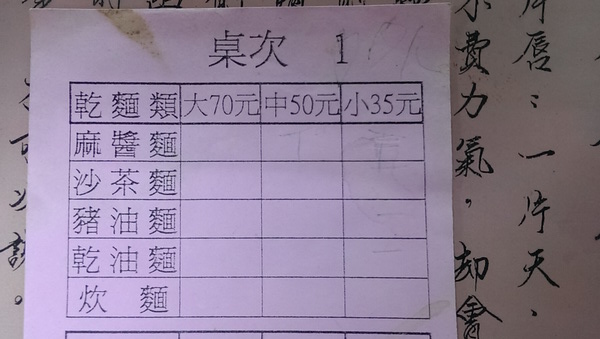 桌次 1
乾麵類 大70元 中50元 小35元
麻醬麵
沙茶麵
豬油麵
乾油麵
炊麵
唇：一片天，
費力氣，却會